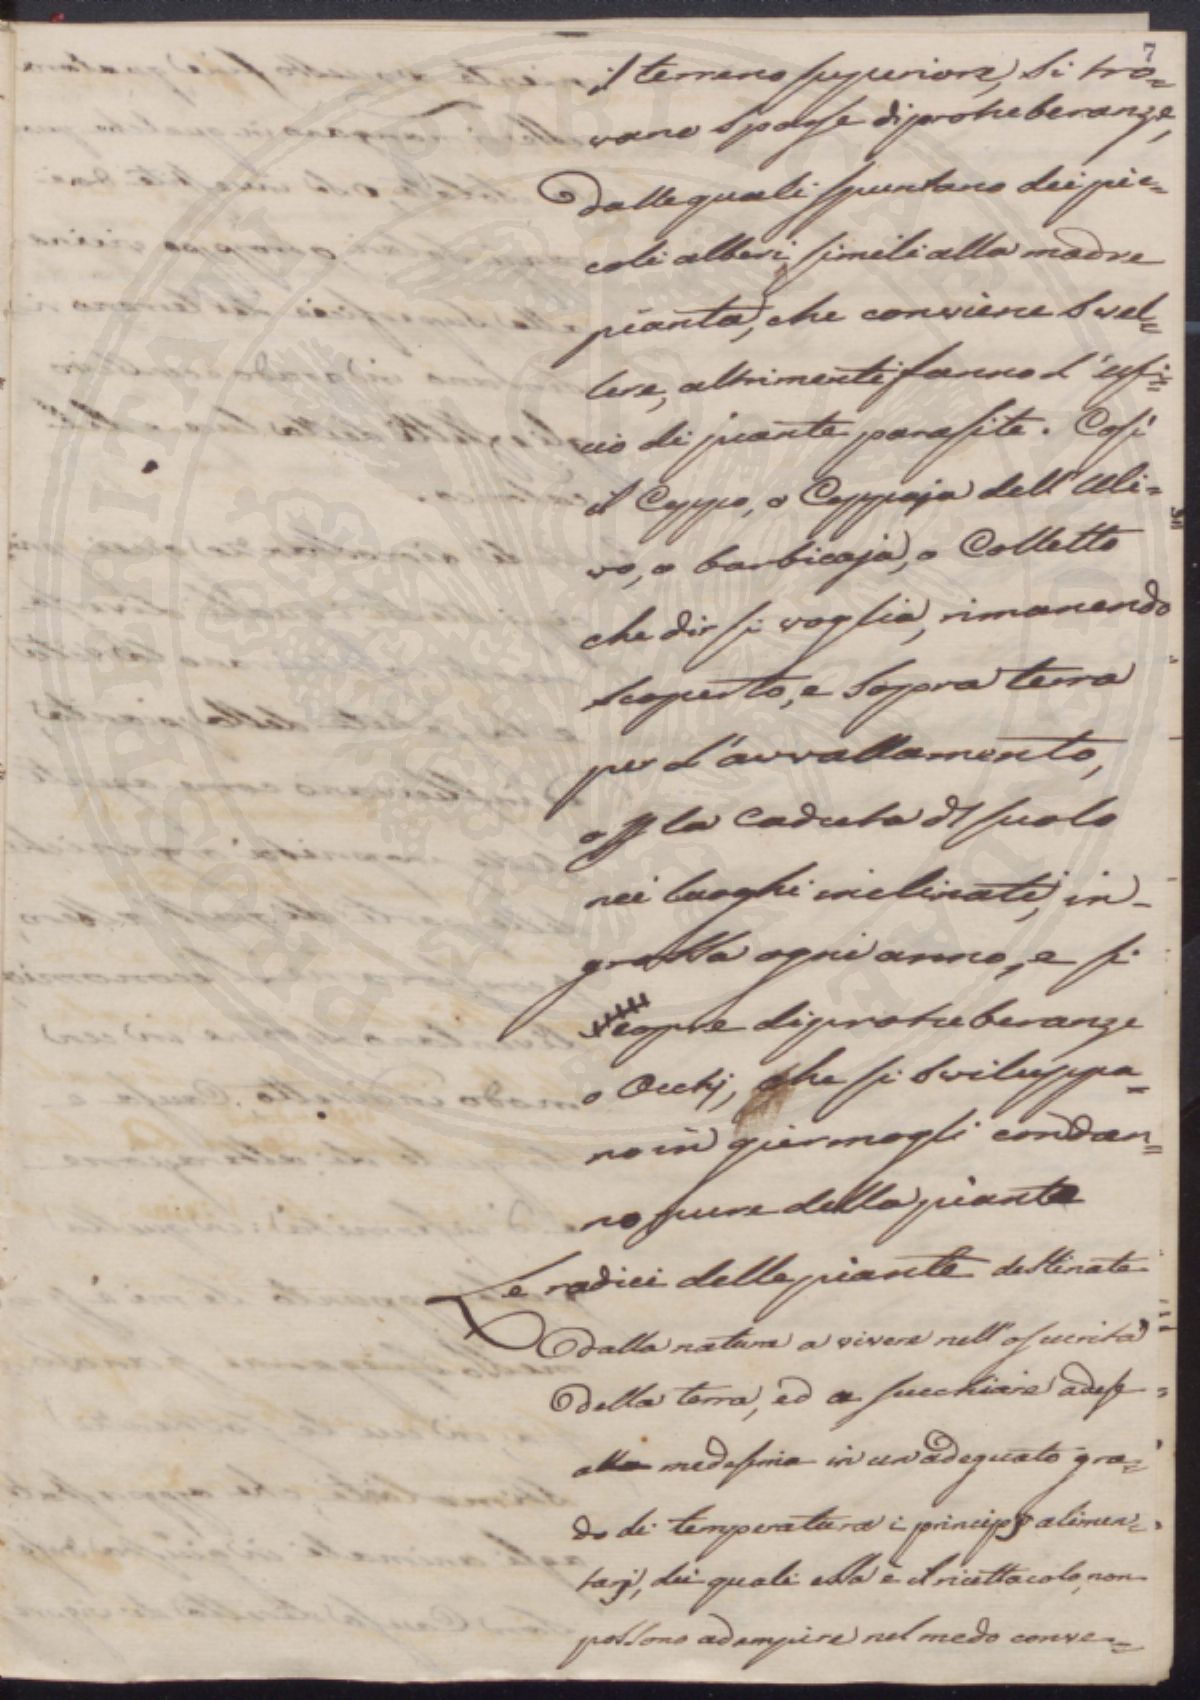 7
il terreno superiore, si tro=
vano sparse di protuberanze,
dalle quali spuntano dei pic=
coli alberi simili alla madre
pianta, che conviene svel=
lere, altrimenti fanno l'ufi=
cio di piante parasite. Così
il Ceppo, o Ceppaja dell'Uli=
vo, o barbicaja, o Colletto
che dir si voglia, rimanendo
scoperto, e sopra terra
per l'avvallamento,
o p la caduta dl suolo
nei luoghi inclinati, in-
grossa ogni anno, e si
copre di protuberanze
o Occhj, che si sviluppa=
no in giermogli con dan=
no pure della pianta
Le radici delle piante destinate
dalla natura a vivere nell'oscurità
della terra, ed a succhiare
alla medesima in un adeguato gra=
do di temperatura i principj alimen=
tarj, dei quali essa è il ricettacolo, non
possono adempire nel modo conve=